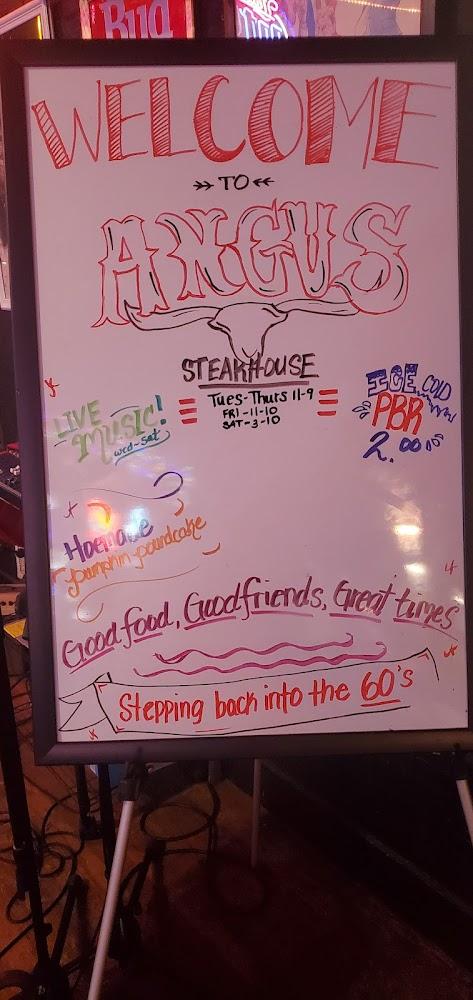 Bud
WELCOME
TO
ANGUS
STEAKHOUSE
Tues-Thurs 11-9
FRI-11-10
SAT-3-10
LIVE
MUSIC!
wed-sat
ICE COLD
PBR
2.00
Homade
pumpkin poundcake
Good food, Good friends, Great times
Stepping back into the 60's